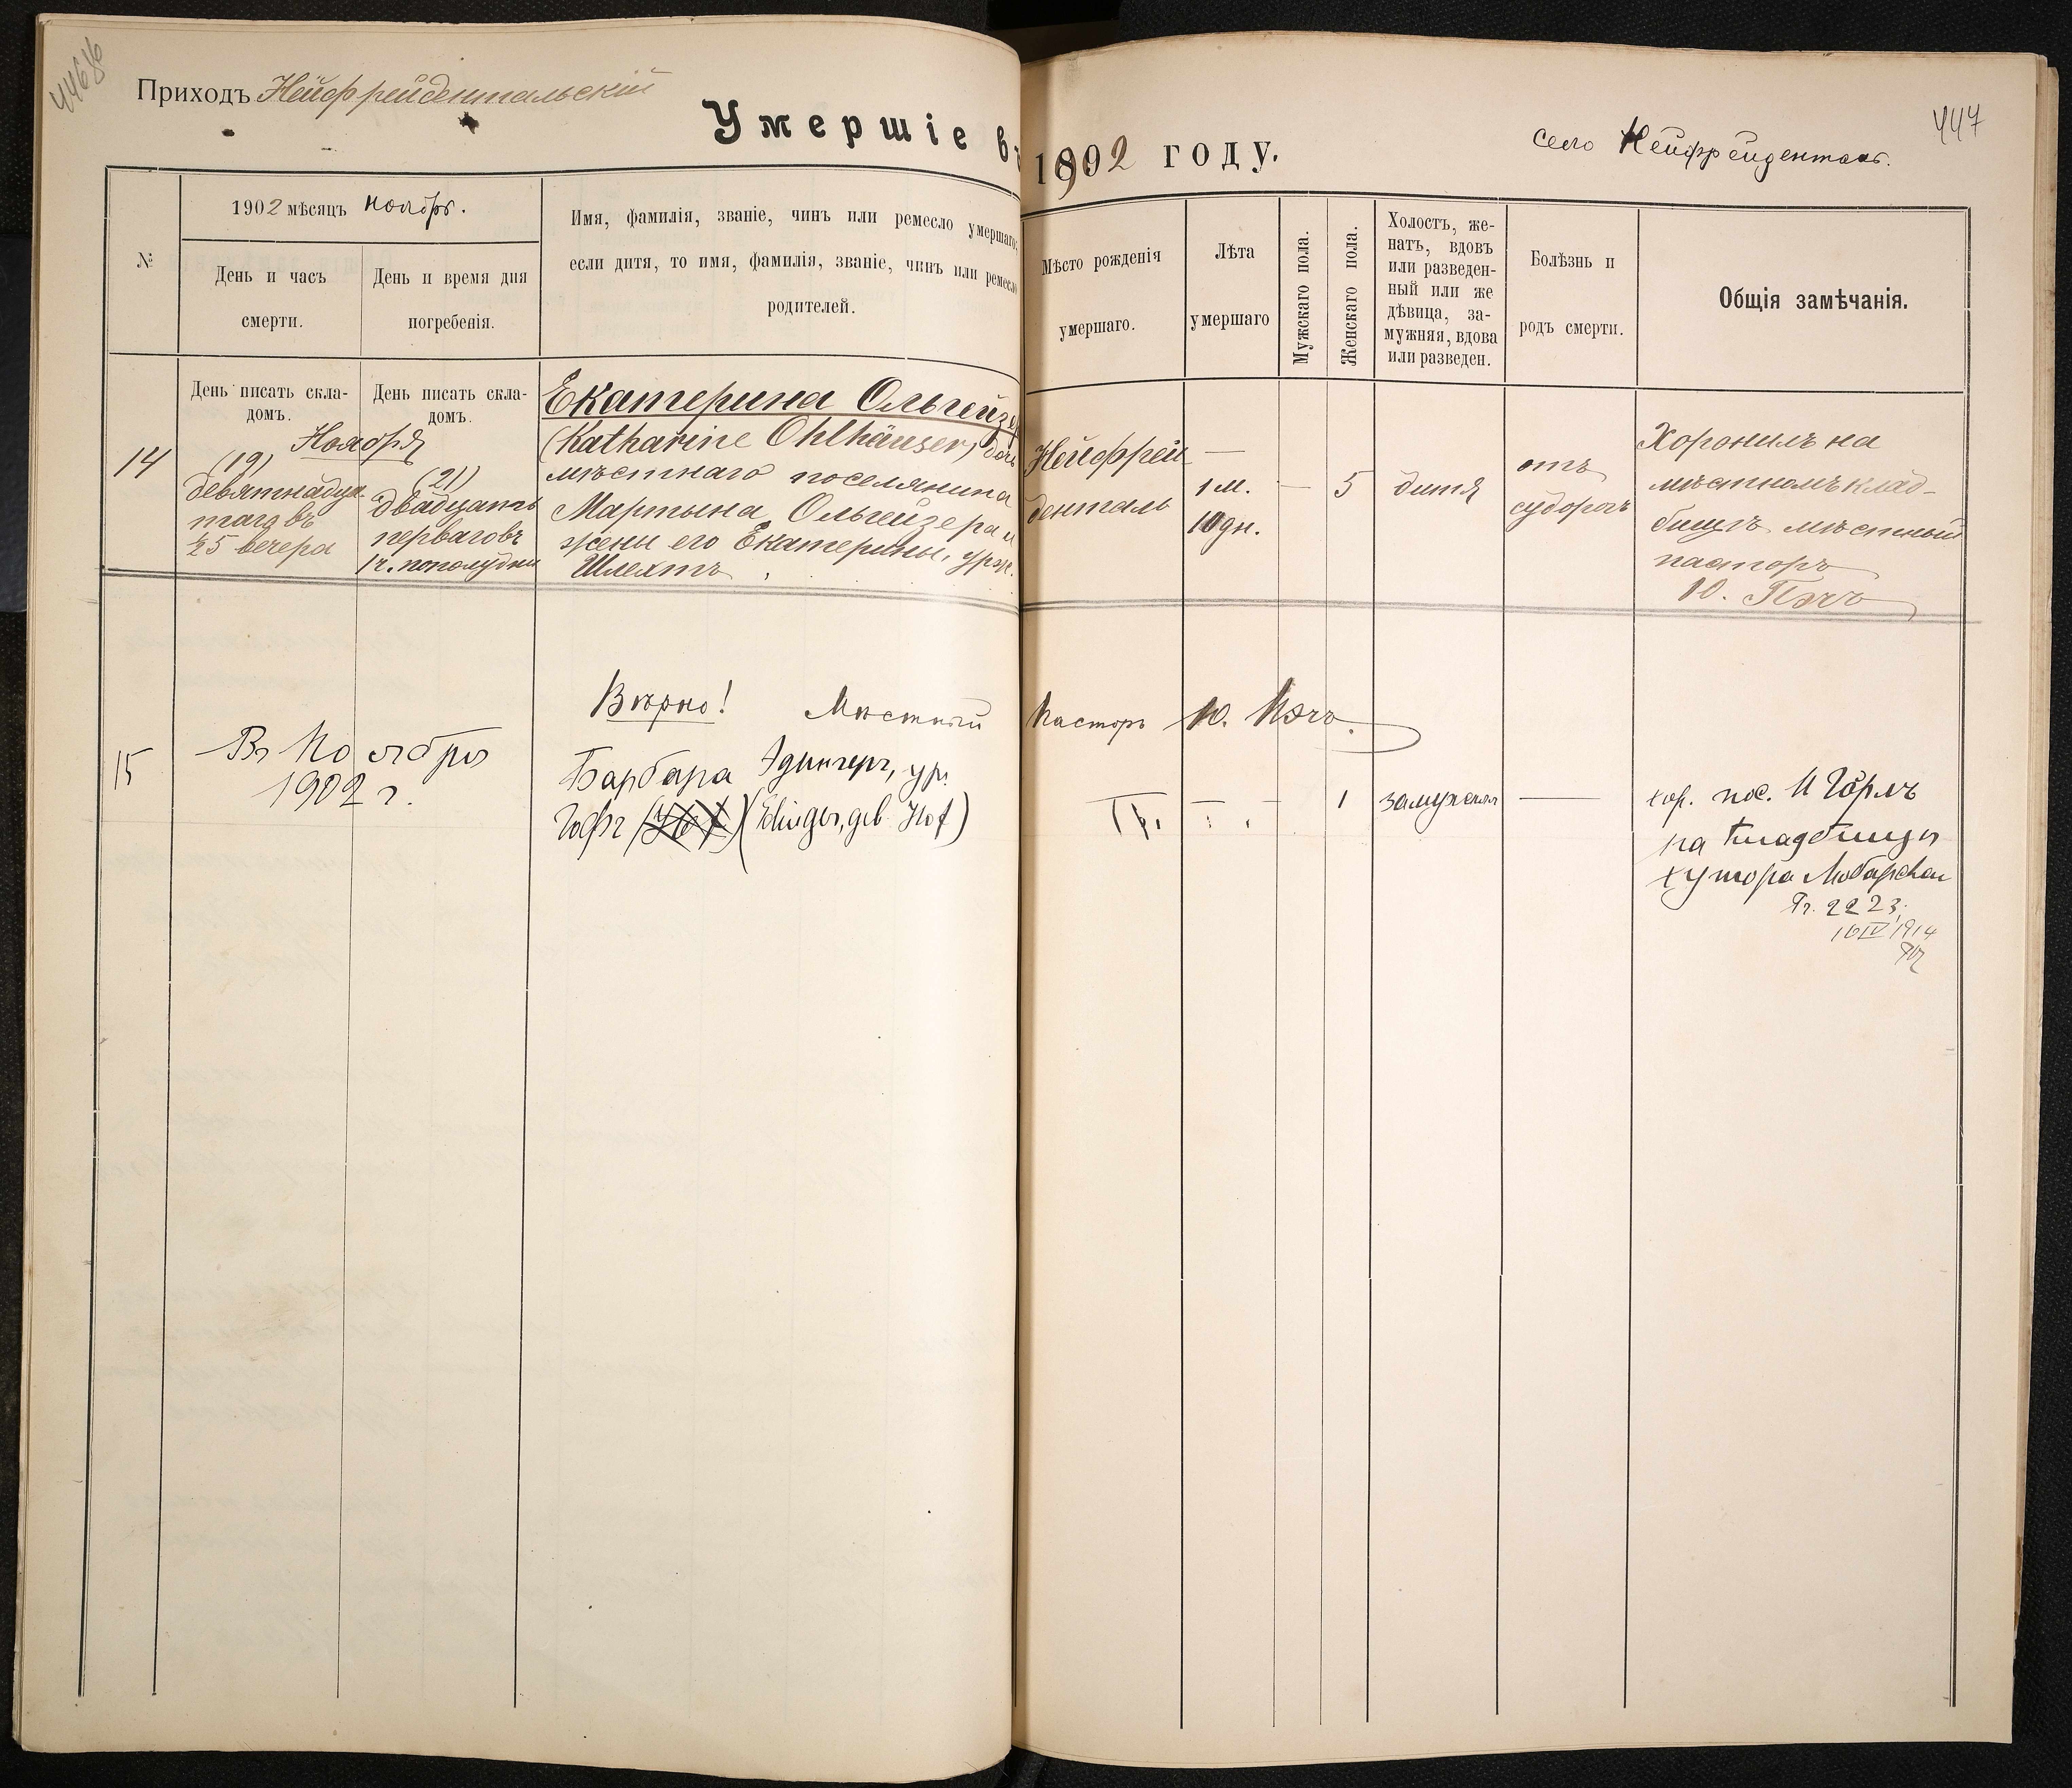 446об
Приходъ Нейфрейдентальскій
Умершіе въ
№
1902 мѣсяцъ ноябрь.
День и часъ
смерти.
День и время дня
погребенія.
Имя, фамилія, званіе, чинъ или ремесло умершаго;
если дитя, то имя, фамилія, званіе, чинъ или ремесло
родителей.
День писать скла-
домъ.
День писать скла-
домъ.
Ноября
14
(19)
девятнадца-
таго въ
½5 вечера
(21)
двадцать
перваго въ
1 ч. пополудни
Екатерина Ольгейзер
(Katharine Ohlhäuser), дочь
мѣстнаго поселянина
Мартына Ольгейзера и
жены его Екатерины, урож.
Шлехтъ
Вѣрно! Мѣстный
15
Въ Ноябрѣ
1902 г.
Барбара Эдингеръ, ур.
Гофъ (Edinger, geb. Hof)
447
1902 году.
село Нейфрейденталь.
Мѣсто рожденія
умершаго.
Лѣта
умершаго
Мужскаго пола.
Женскаго пола.
Холостъ, же-
натъ, вдовъ
или разведен-
ный или же
дѣвица, за-
мужняя, вдова
или разведен.
Болѣзнь и
родъ смерти.
Общія замѣчанія.
Нейфрей-
денталь
—
1 м.
10 дн.
—
5
дитя
отъ
судорогъ
Хоронилъ на
мѣстномъ клад-
бищѣ мѣстный
пасторъ
Ю. Пэчъ
Пасторъ Ю. Пэчъ.
— — —
1
замужняя
—
хор. пос. И Гёрлъ
на кладбищѣ
хутора
№. 2223.
16 IV 1914